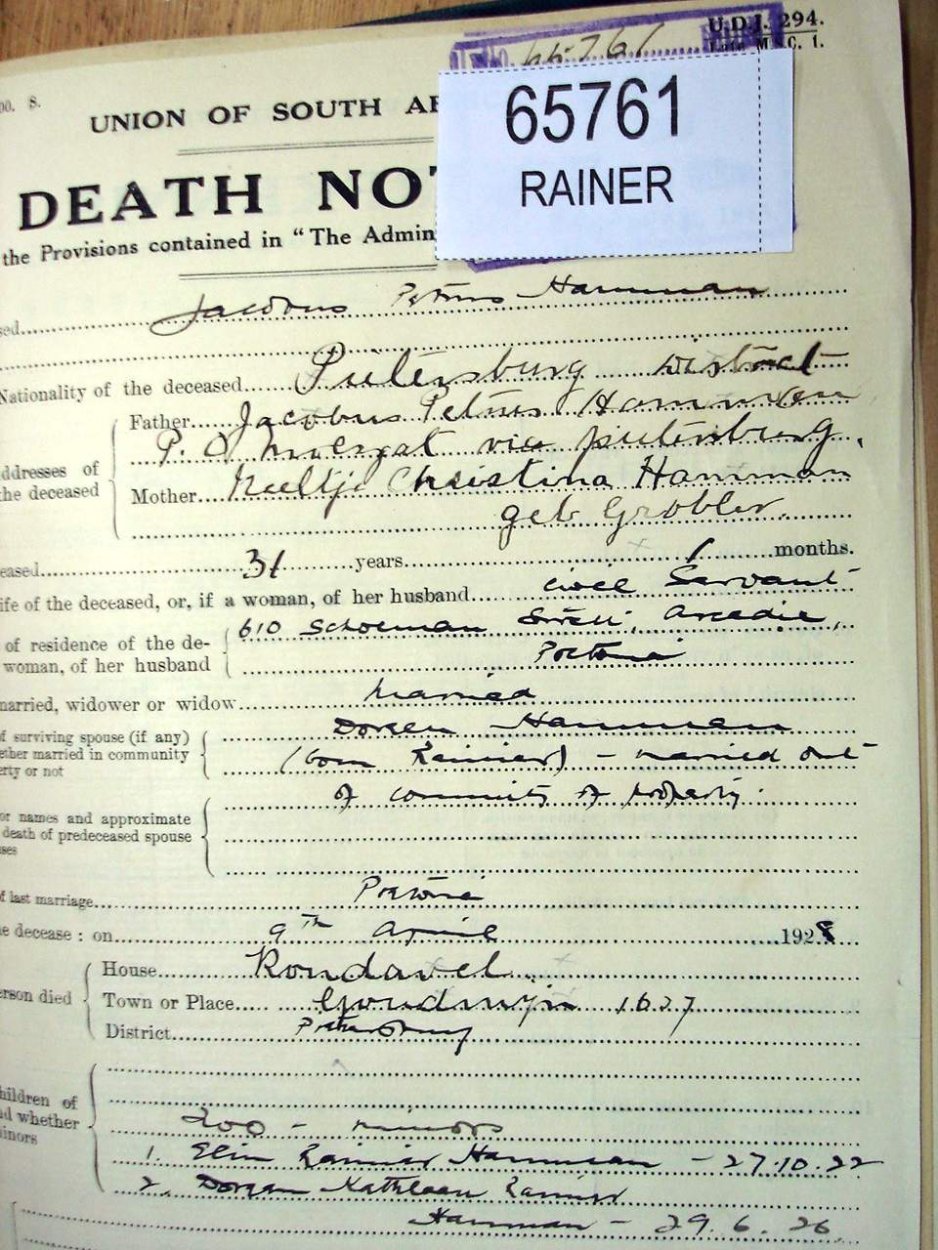 U.D.J. 294.
65761
RAINER
UNION OF SOUTH AF
DEATH NOT
the Provisions contained in "The Admin
Jacobus Petrus Hamman
Nationality of the deceased Pietersburg District
Father Jacobus Petrus Hamman
P. O via pietersburg.
ddresses of
the deceased
Mother Neeltje Christina Hamman
geb Grobler.
eased 31 years 1 months.
ife of the deceased, or, if a woman, of her husband Civil Servant
of residence of the de-
woman, of her husband
610 Schoeman Street, Arcadia,
Pretoria
married, widower or widow married
f surviving spouse (if any)
ether married in community
erty or not
Doreen Hamman
(born Rainier) - married out
of community of property.
or names and approximate
death of predeceased spouse
ses
f last marriage Pretoria
e decease : on 9th April 1928
erson died
House Rondavel
Town or Place 1627
District Pietersburg
hildren of
nd whether
inors
Two - minors
1. Rainier Hamman - 27.10.22
2. Doreen Kathleen Rainier
Hamman - 29.6.26